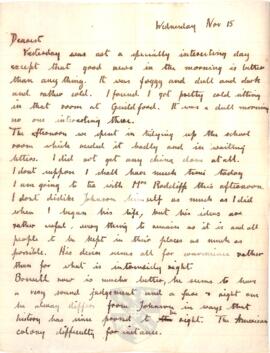 Wednesday Nov 15
Dearest
Yesterday was not a specially interesting day
except that good news in the morning is better
than anything. It was foggy and dull and dark
and rather cold. I found I got pretty cold sitting
in that room at Guildford. It was a dull morning
no one interesting there.
The afternoon we spent in tidying up the school
room which needed it badly and in writing
letters. I did not get any done at all.
I dont suppose I shall have much time today
I am going to tea with Mrs Radcliff this afternoon
I dont dislike Johnson himself as much as I did
when I began his life, but his ideas are
rather awful, every thing to remain as it is and all
people to be kept in their places as much as
possible. His desire seems all for convenience rather
than for what is intrinsically right.
Boswell now is much better, he seems to have
a very sound judgement and a fair & right one
he always differs from Johnson in ways that
history has since proved to be right. The American
colony difficulty for instance.